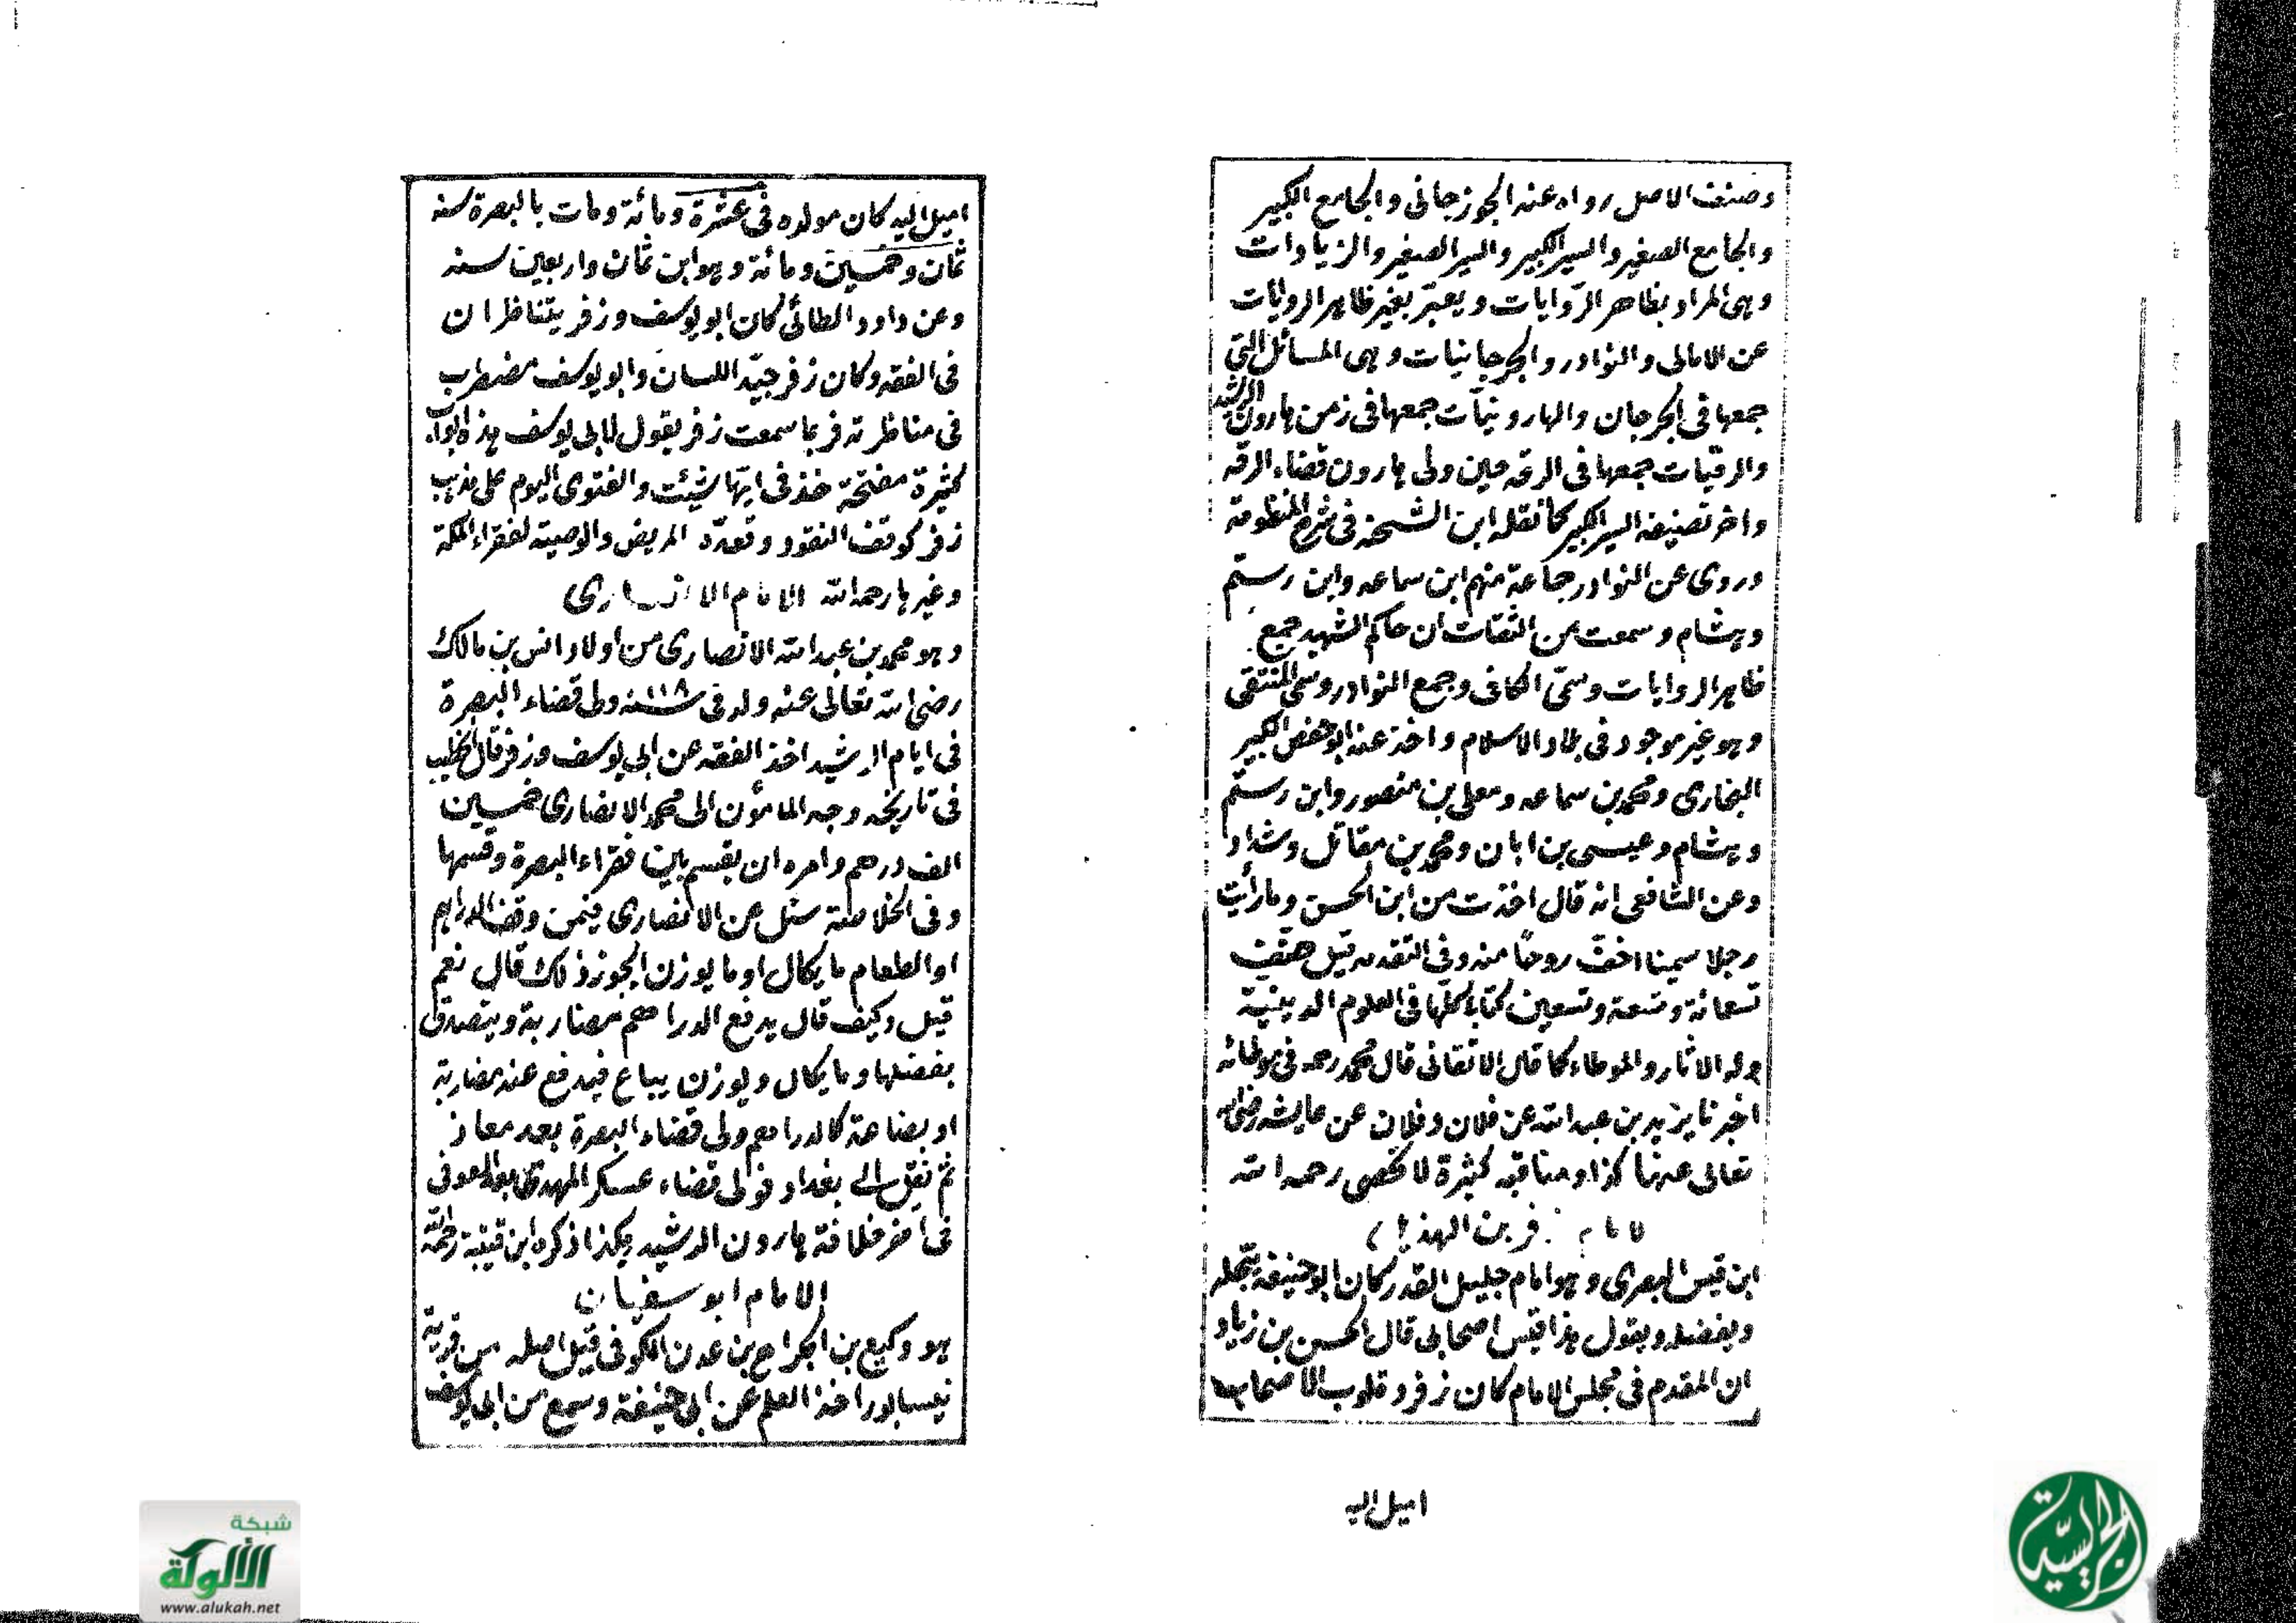 وصنف الاصل رواه عنه الجوزجانى والجامع الكبير
والجامع الصغير والسير الكبير والسير الصغير والزيادات
وهى المراد بظاهر الرّوايات ويعبّر بغير ظاهر الروايات
عن الامالى والنوادر والجرجانيات وهى المسائل التى
جمعها فى الجرجان والهارونيّات جمعها فى زمن هارون الرشيد
والرقيات جمعها فى الرقه حين ولى هارون قضاء الرقه
واخر تصنيفه السير الكبير كما نقله ابن الشحنه فى شرح المنظومة
وروى عن النوادر جماعة منهم ابن سماعه وابن رستم
وهشام وسمعت من الثقات ان حاكم الشهيد جمع
ظاهر الروايات وسمّى الكافى وجمع النوادر وسمى المنتقى
وهو غير موجود فى بلاد الاسلام واخذ عنه ابو حفص الكبير
البخارى ومحمد بن سماعه ومعلى بن منصور وابن رستم
وهشام وعيسى بن ابان ومحمد بن مقاتل وشداد
وعن الشافعى انه قال اخذت من ابن الحسن وما رأيت
رجلا سمينا اخفّ روحًا منه وفى التقدمه قيل صنّف
تسعمائة وتسعة وتسعين كتابا كلّها فى العلوم الدينية
وله الاثار والموطاء كما قال الاتقانى قال محمد رحمه فى موطائه
اخبرنا يزيد بن عبد الله عن فلان وفلان عن عايشه رضى الله
تعالى عنها كذا ومناقبه كثيرة لا تحصى رحمه الله
فر بن الهذ
ابن قيس البصرى وهو امام جليل القدر كان ابو حنيفة يبجّله
ويفضله ويقول هذا اقيس اصحابى قال الحسن بن زياد
ان المقدم فى مجلس الامام كان زفر وقلوب الاصحاب
اميل اليه
اميل اليه كان مولده فى عشرة ومائة ومات بالبصرة سنه
ثمان وخمسين ومائة وهو ابن ثمان واربعين سنه
وعن داود الطائى كان ابو يوسف وزفر يتناظران
فى الفقه وكان زفر جيّد اللسان وابو يوسف مضطرب
فى مناظرته فربما سمعت زفر يقول لابى يوسف هذه ابواب
كثيرة مفتحة خذ فى ايّها شئت والفتوى اليوم على مذهب
زفر كوقف النقود وتعدّد المريض والوصية لفقراء المكة
وغيرها رحمه الله الامام الانصارى
وهو محمد بن عبد الله الانصارى من اولاد انس بن مالك
رضى الله تعالى عنه ولد فى سنه ١١٨ ولى قضاء البصرة
فى ايام الرشيد اخذ الفقه عن ابى يوسف وزفر قال الخطيب
فى تاريخه وجه المامؤن الى محمد الانصارى خمسين
الف درهم وامره ان يقسم بين فقراء البصرة وقسمها
وفى الخلاصة سئل عن الانصارى فيمن وقف الدراهم
او الطعام ما يكال او ما يوزن ايجوز ذلك قال نعم
قيل وكيف قال يدفع الدراهم مضاربة ويتصدق
بفضلها وما يكال ويوزن يباع فيدفع عنه مضاربة
او بضاعة كالدراهم وولى قضاء البصرة بعد معاذ
ثم نقل الى بغداد فولى قضاء عسكر المهدى بعد العوفى
فى آخر خلافة هارون الرشيد هكذا ذكره ابن قتيبة رحمه الله
الامام ابو سفيان
هو وكيع بن الجراح بن عدن الكوفى قيل اصله من قرية
نيسابور اخذ العلم عن ابى حنيفة وسمع من ابى يوسف
شبكة
الألوكة
www.alukah.net